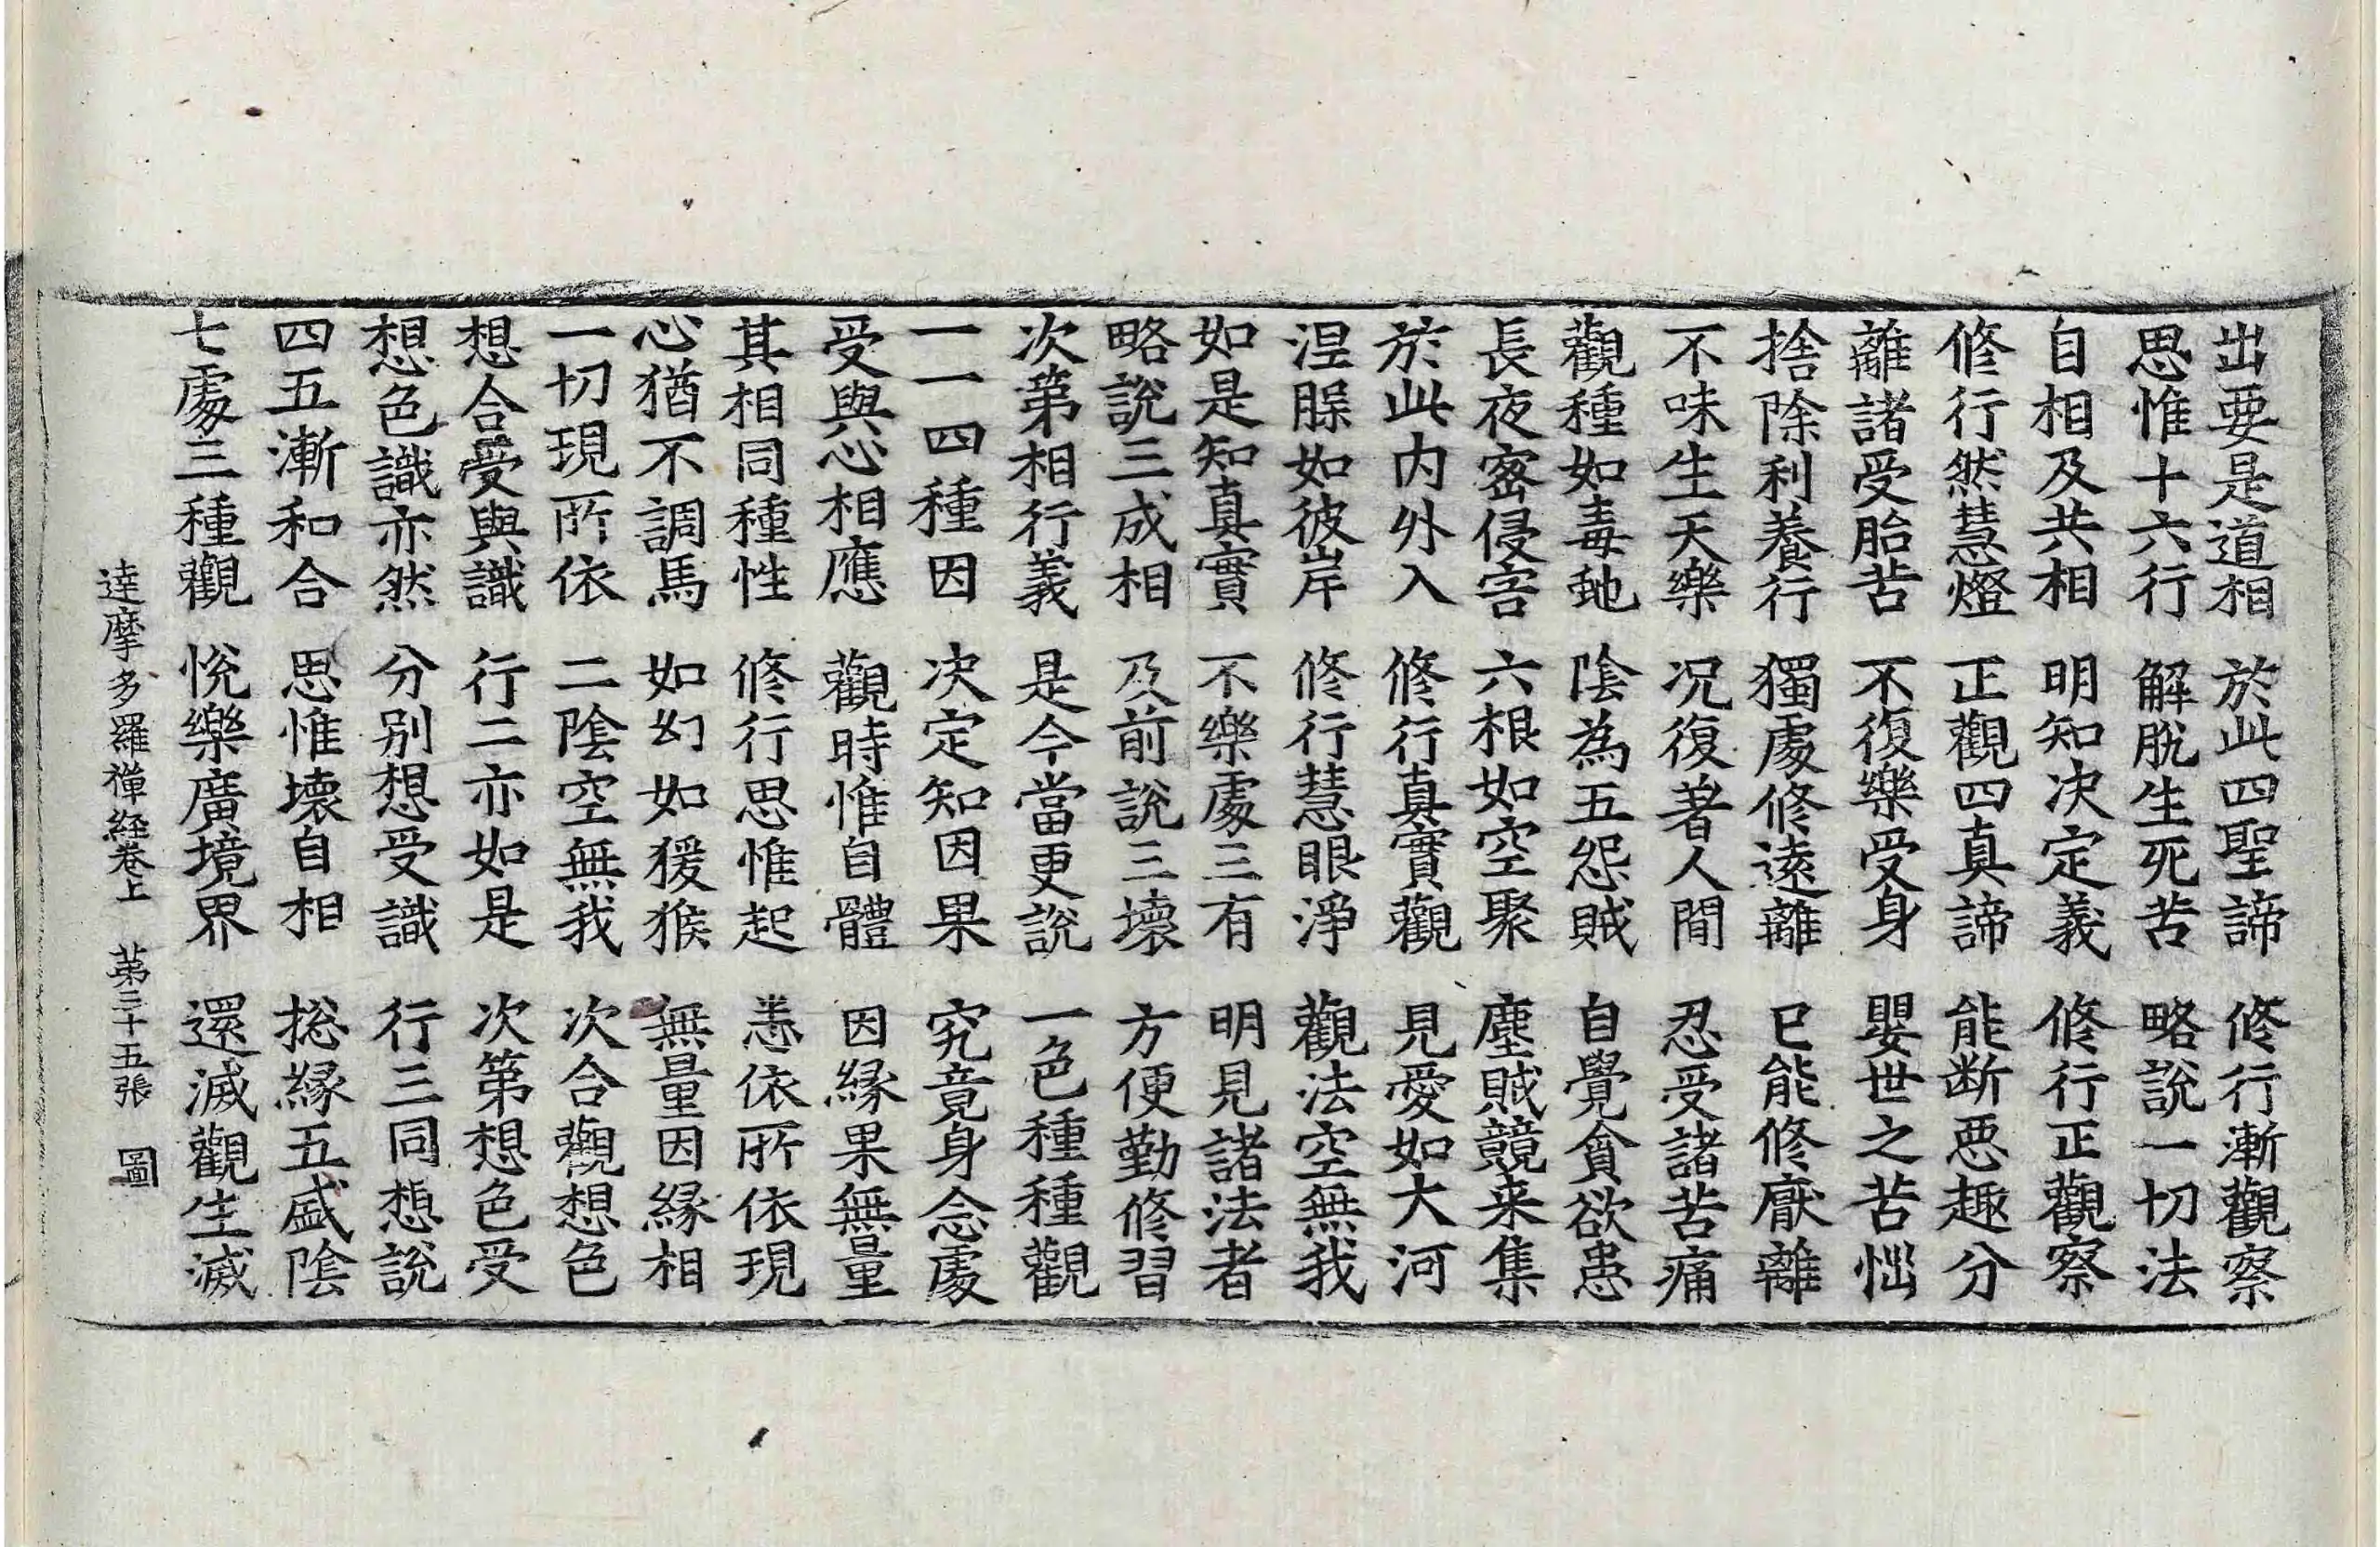 出要是道相　於此四聖諦　修行漸觀察
思惟十六行　解脫生死苦　略說一切法
自相及共相　明知決定義　修行正觀察
修行然慧燈　正觀四真諦　能断惡趣分
離諸受胎苦　不復樂受身　嬰世之苦惱
捨除利養行　獨處修遠離　已能修厭離
不味生天樂　况復著人間　忍受諸苦痛
觀種如毒虵　陰為五怨賊　自覺貪欲患
長夜密侵害　六根如空聚　塵賊競来集
於此內外入　修行真實觀　見愛如大河
涅槃如彼岸　修行慧眼淨　觀法空無我
如是知真實　不樂處三有　明見諸法者
略說三成相　及前說三壞　方便勤修習
次第相行義　是今當更說　一色種種觀
一一四種因　決定知因果　究竟身念處
受與心相應　觀時惟自體　因緣果無量
其相同種性　修行思惟起　悉依所依現
心猶不調馬　如幻如猨猴　無量因緣相
一切現所依　二陰空無我　次合觀想色
想合受與識　行二亦如是　次第想色受
想色識亦然　分別想受識　行三同想說
四五漸和合　思惟壞自相　捴緣五盛陰
七處三種觀　悅樂廣境界　還滅觀生滅
達摩多羅禪経卷上　第三十五張　圖